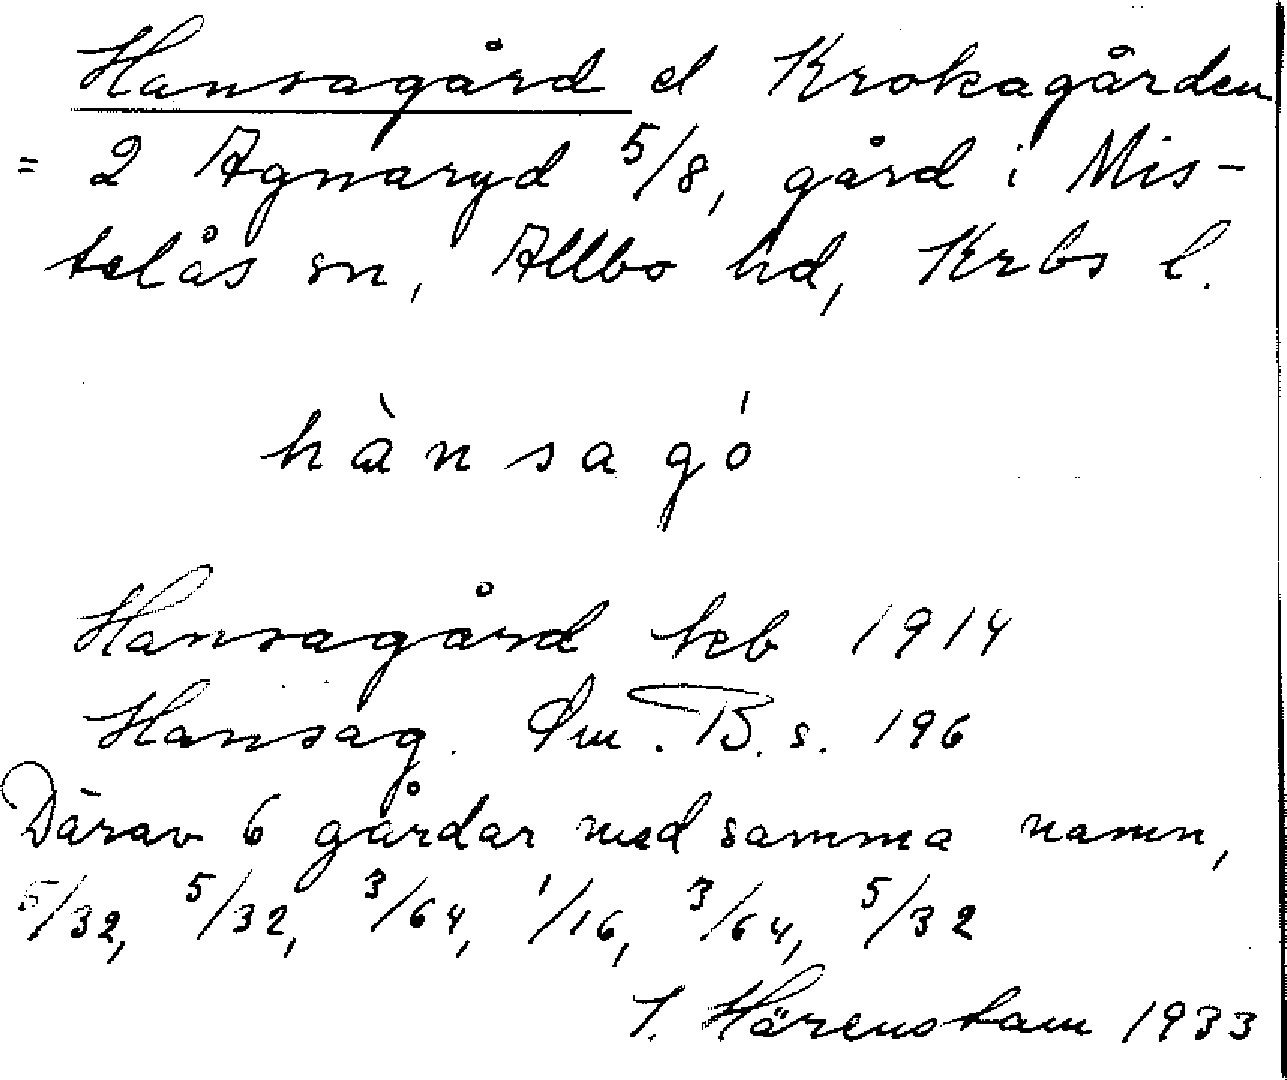 Hansagård el Krokagården
= 2 Agnaryd 5/8, gård i Mis-
telås sn, Allbo hd, Krbs l.
hànsagó
Hansagård keb 1914
Hansag. Öm. B. s. 196
Därav 6 gårdar med samma namn,
5/32, 5/32, 3/64, 1/16, 3/64, 5/32
I. Härenstam 1933